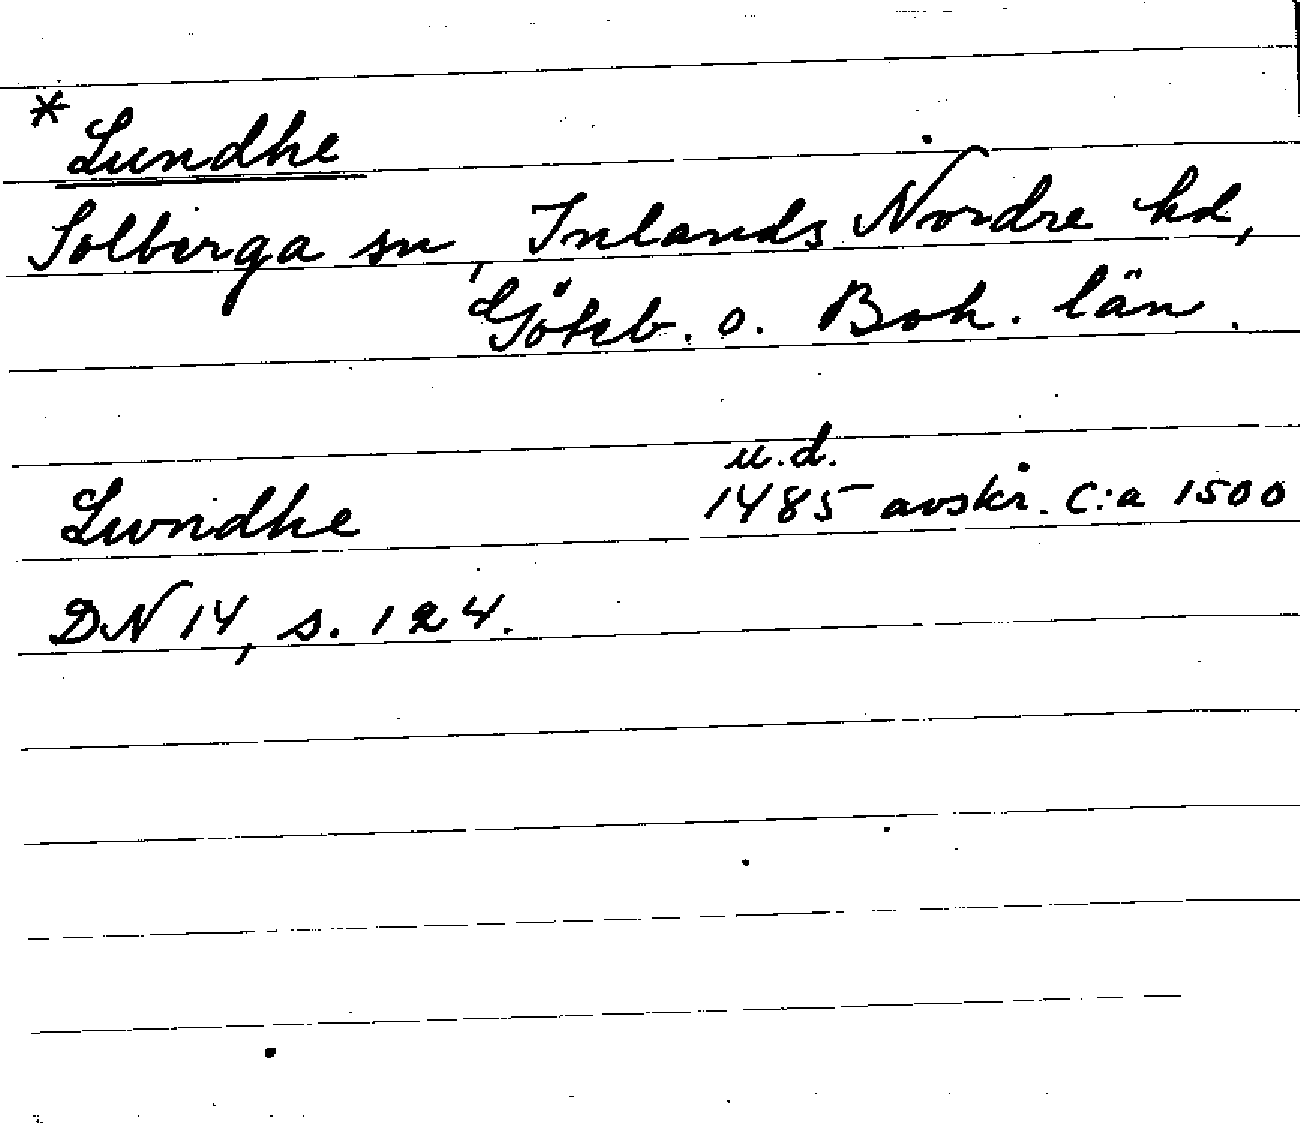 * Lundhe
Solberga sn, Inlands Nordre hd,
Göteb. o. Boh. län.
u.d.
Lundhe 1485 avskr. c:a 1500
DN 14, s. 124.